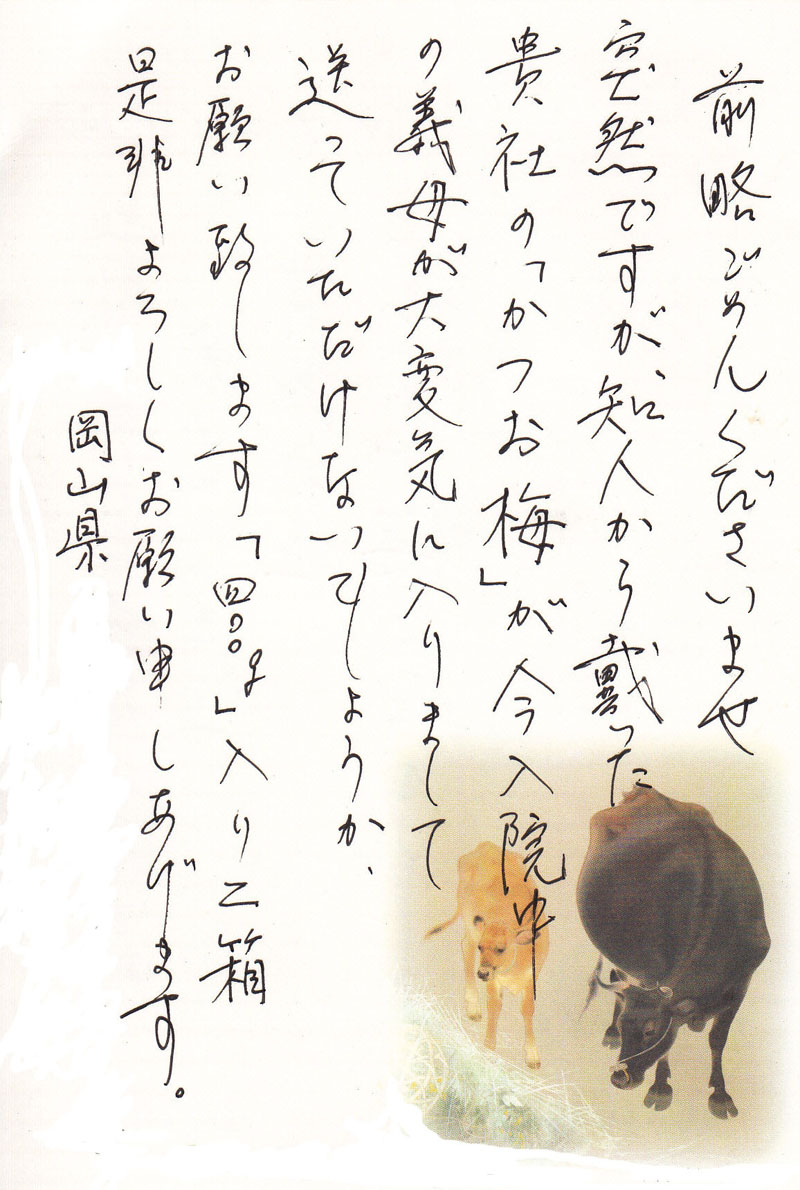 前略ごめんくださいませ
突然ですが、知人から戴った
貴社の「かつお梅」が今入院中
の義母が大変気に入りまして
送っていただけないでしょうか、
お願い致します「四〇〇g」入り二箱
是非よろしくお願い申しあげます。
岡山県